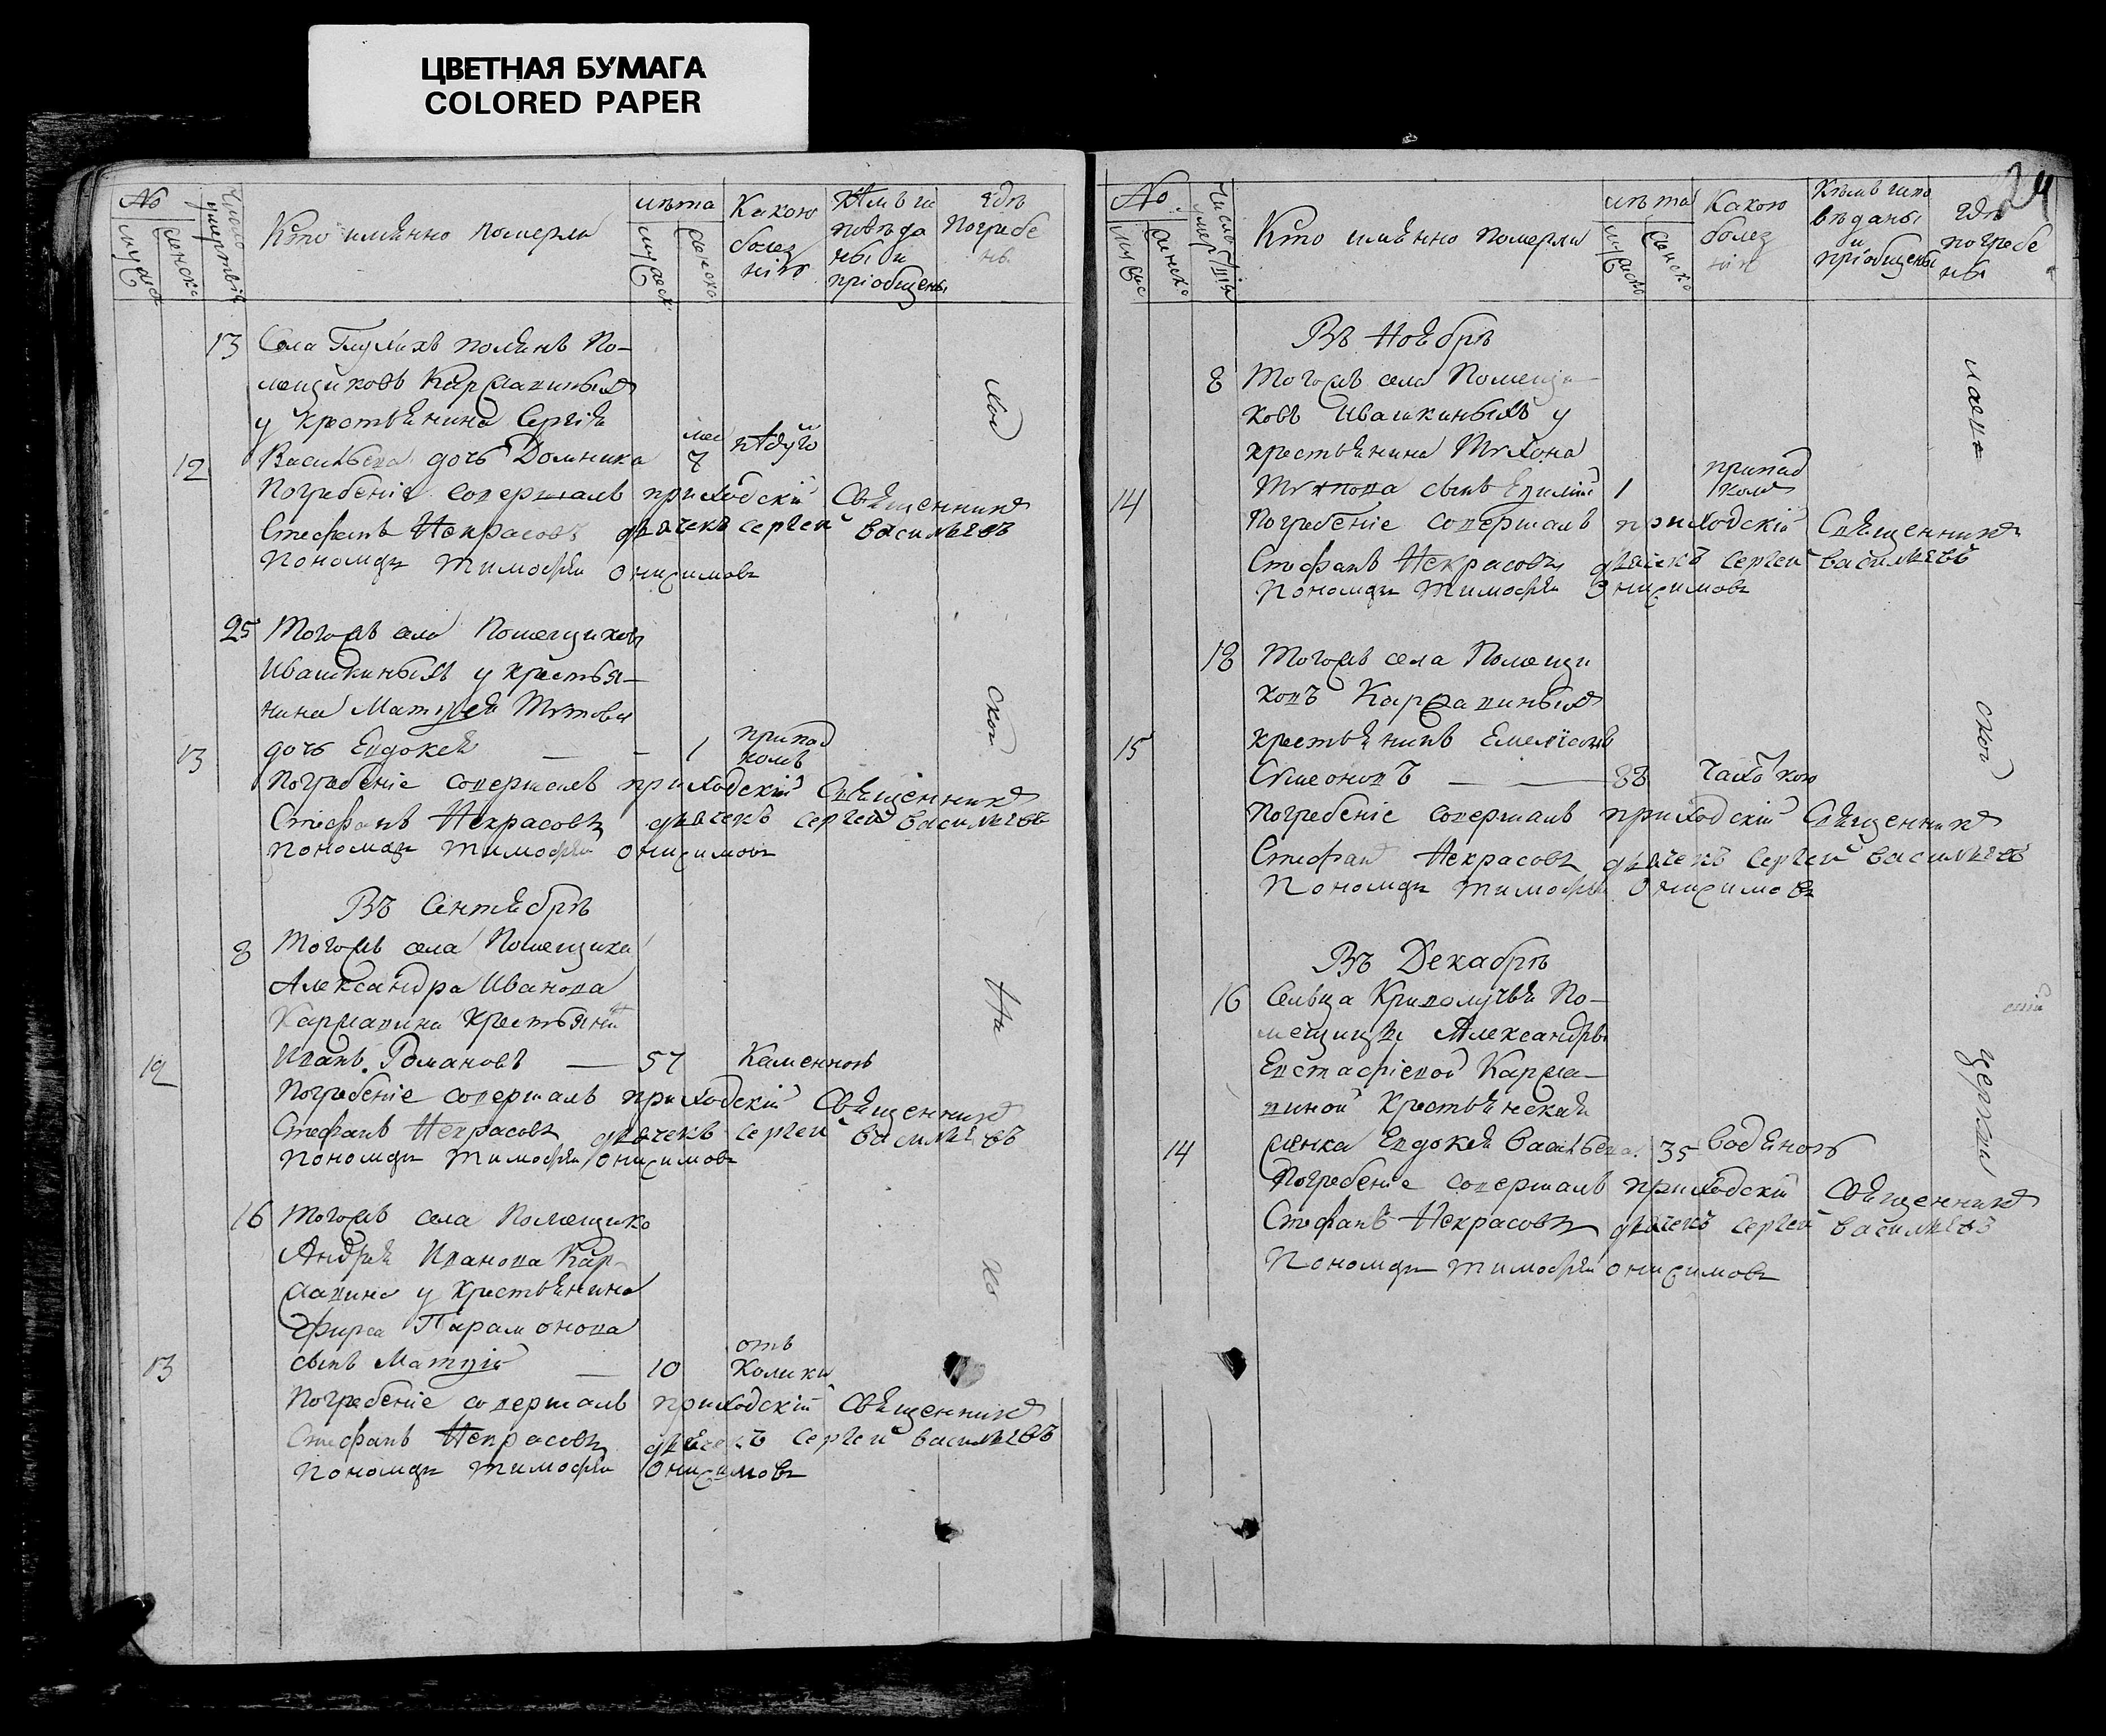 ЦВЕТНАЯ БУМАГА
COLORED PAPER
№
Число умертвія
Кто имянно померли
лѣта
Какою болезнію
гдѣ погребены
муска
женска
13 Села Глу полянъ По-
мещиковъ Кармалиныхъ
у крестьянина Сергія
12 Васильева дочь Домника 7
Погребеніе совершалъ приходскій Священникъ
Стефанъ Некрасовъ дьячекъ Сергей Васильевъ
Пономарь Тимофѣй Онисимовъ
25 Тогожъ села Помещиковъ
Ивашкиныхъ у крестья-
нина Матвея Титова
13 дочь Евдокея — 1 припадкомъ
Погребеніе совершалъ приходскій Священникъ
Стефанъ Некрасовъ дьячекъ Сергей Васильевъ
Пономарь Тимофѣй Онисимовъ
Въ Сентябрѣ
8 Тогожъ села Помещика
Александра Иванова
Кармалина крестьянинъ
12 Иванъ Романовъ — 57 Каменною
Погребеніе совершалъ приходскій Священникъ
Стефанъ Некрасовъ дьячекъ Сергей Васильевъ
Пономарь Тимофѣй Онисимовъ
16 Тогожъ села Помещика
Андрея Иванова Кар-
малина у крестьянина
Фирса Парамонова
13 сынъ Матвій — 10 отъ Колики
Погребеніе совершалъ приходскій Священникъ
Стефанъ Некрасовъ дьячекъ Сергей Васильевъ
Пономарь Тимофѣй Онисимовъ
На
приходскомъ
24
№
Число умертвія
Кто имянно померли
лѣта
Какою болезнію
Кѣмъ исповѣданы и пріобщены
гдѣ погребены
Въ Ноябрѣ
8 Тогожъ села Помещи-
ковъ Ивашкиныхъ у
крестьянина Тихона
14 сынъ 1 припадкомъ
Погребеніе совершалъ приходскій Священникъ
Стефанъ Некрасовъ дьячекъ Сергей Васильевъ
Пономарь Тимофѣй Онисимовъ
18 Тогожъ села Помещи
ковъ Кармалиныхъ
15 крестьянинъ Емеліанъ
Симеоновъ — 88 Чахоткою
Погребеніе совершалъ приходскій Священникъ
Стефанъ Некрасовъ дьячекъ Сергей Васильевъ
Пономарь Тимофѣй Онисимовъ
Въ Декабрѣ
16 Сельца Криволучья По-
мещицы Александры
Евстафіевой Карма-
линой крестьянская
14 женка Евдокея Васильева 35 водяною
Погребеніе совершалъ приходскій Священникъ
Стефанъ Некрасовъ дьячекъ Сергей Васильевъ
Пономарь Тимофѣй Онисимовъ